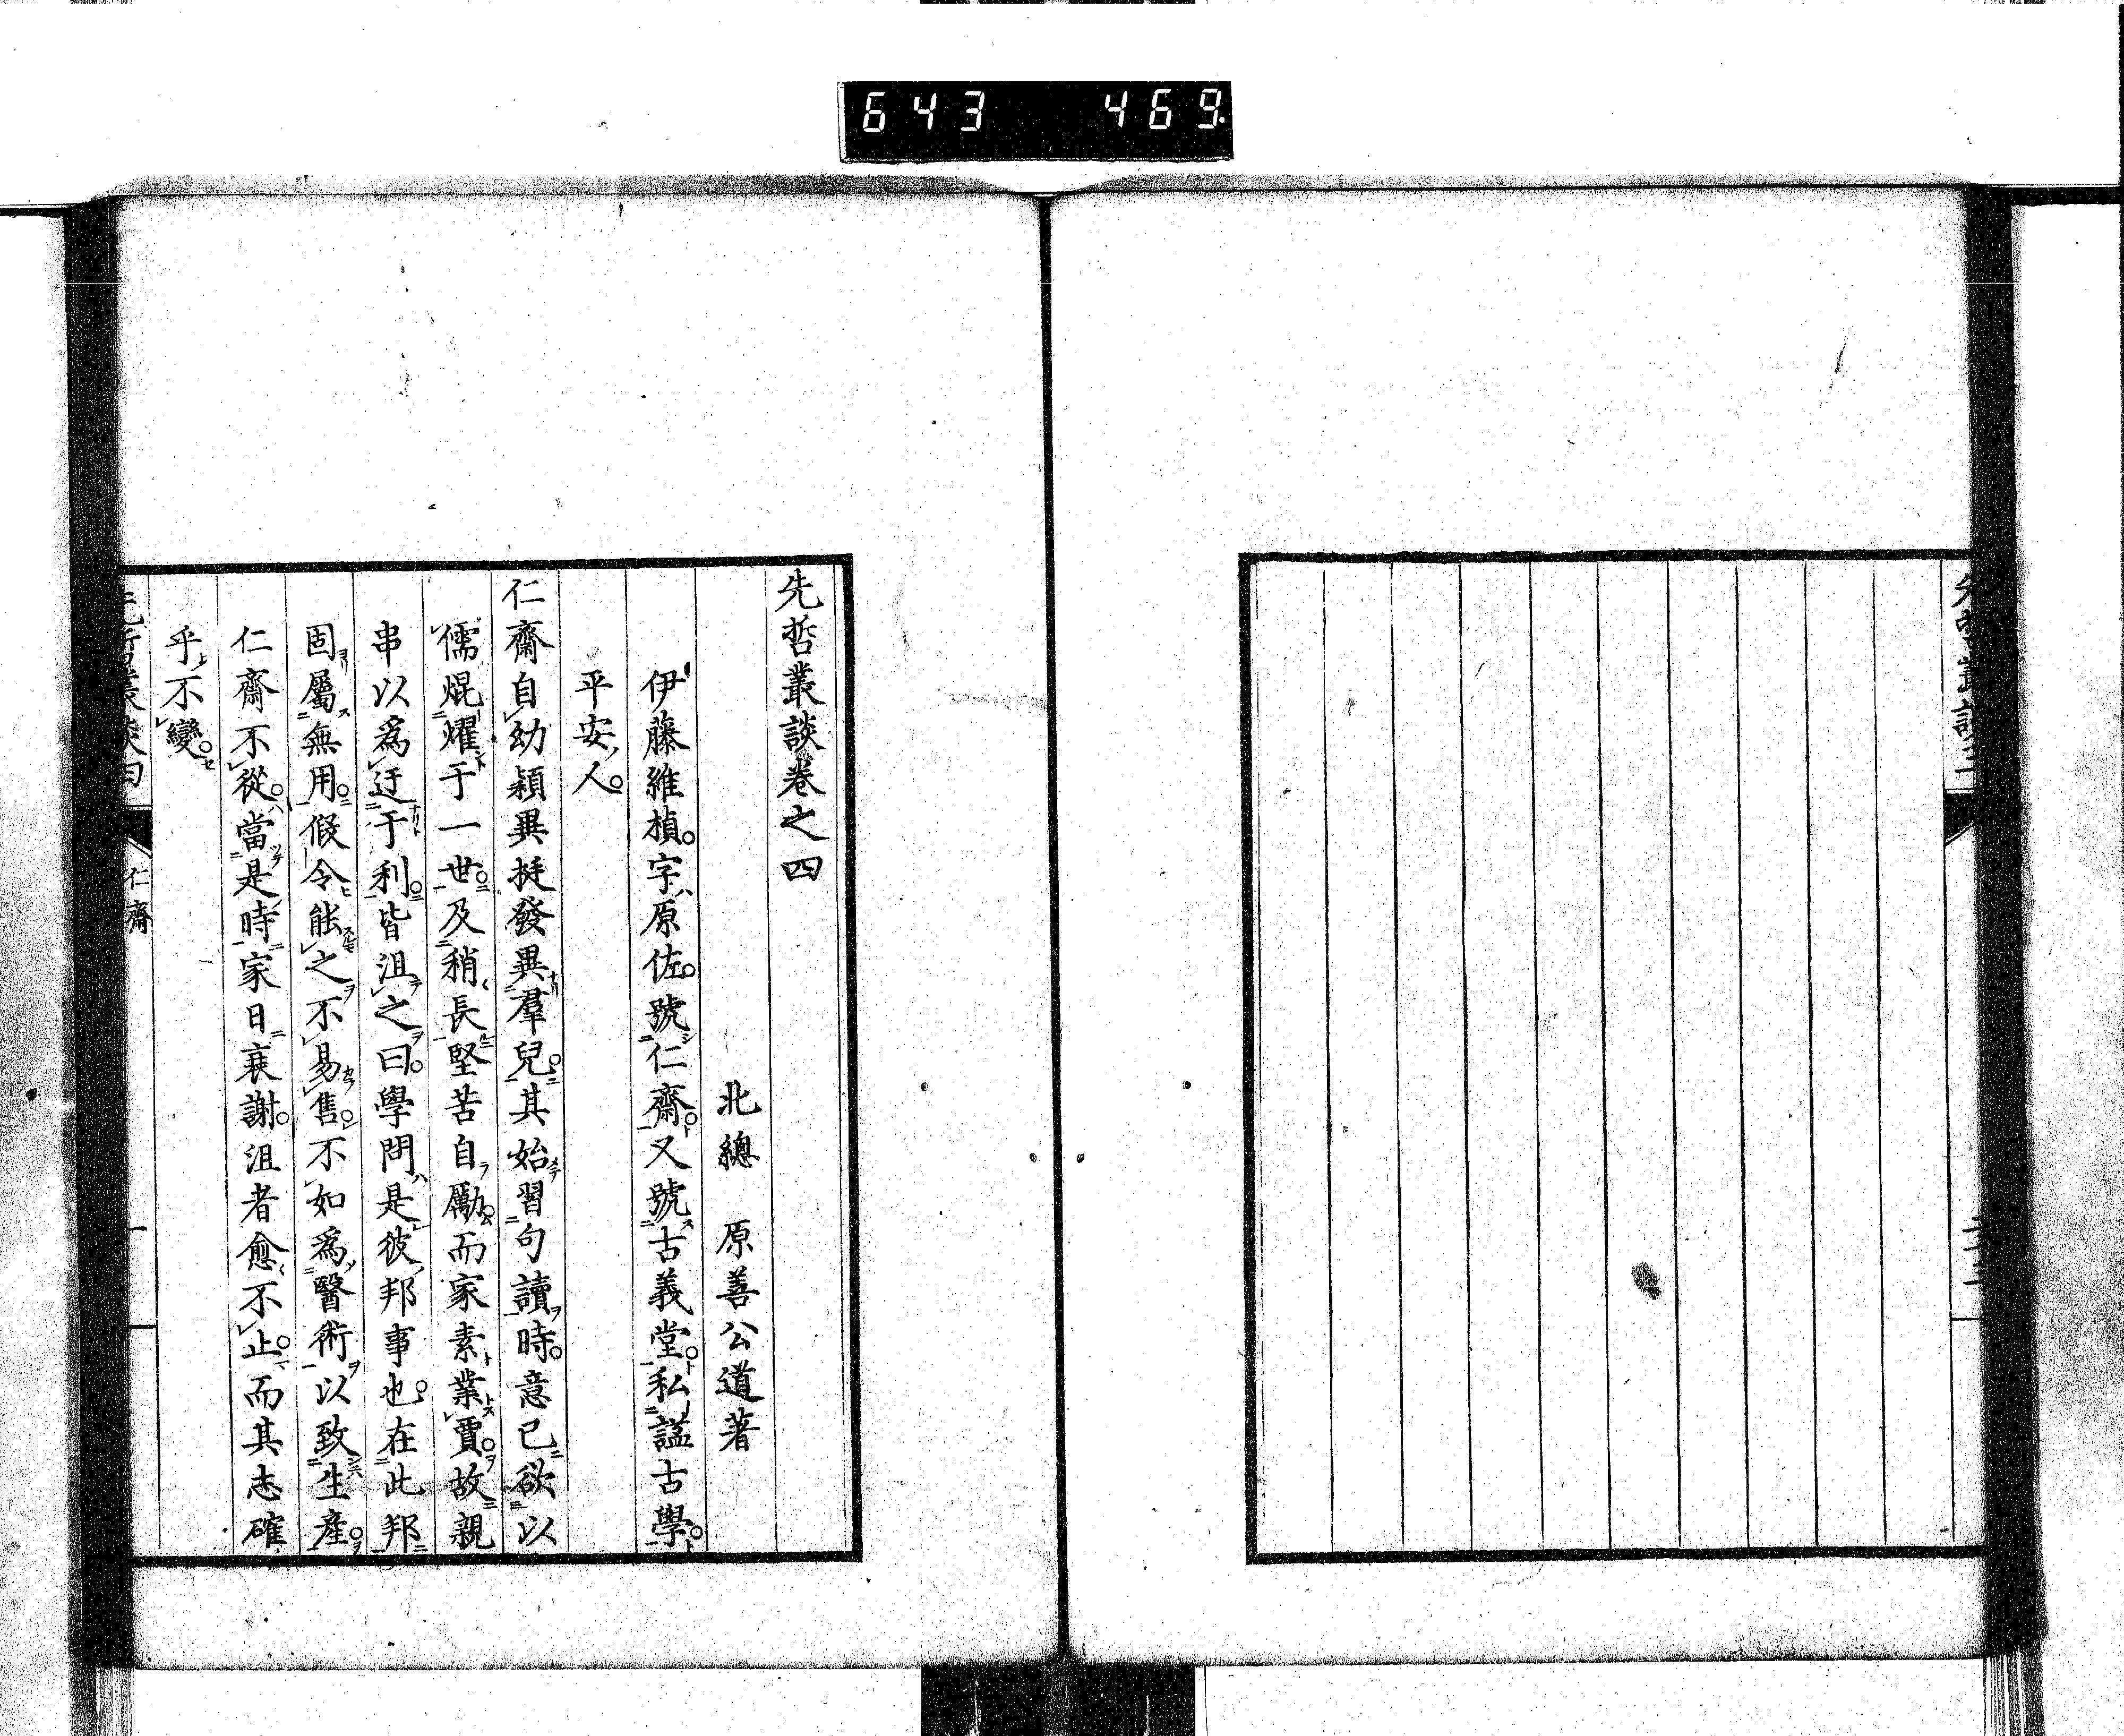 643 469
先哲叢談三
二十三
先哲叢談卷之四
北總 原善公道著
伊藤維楨。字原佐。號仁齋。又號古義堂。私謚古學。
平安人。
仁齋自幼穎異挺發異羣兒。其始習句讀時。意已欲以
儒焜燿于一世。及稍長堅苦自勵。而家素業賈。故親
串以爲迂于利。皆沮之曰。學問是彼邦事也。在此邦
固屬無用。假令能之不易售。不如爲醫術以致生產。
仁齋不從。當是時家日衰謝。沮者愈不止。而其志確
乎不變。
先哲叢談四
仁齋
一